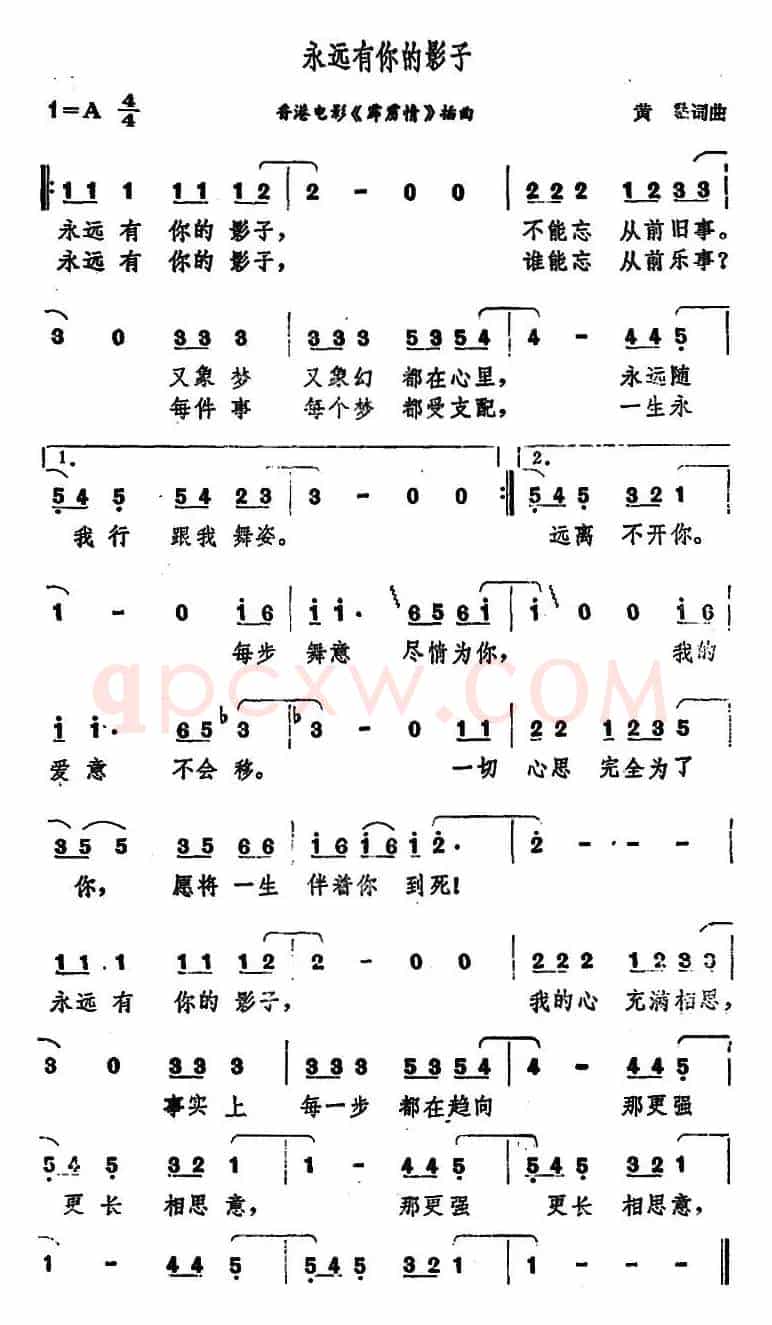 永远有你的影子
1=A 4/4 香港电影《霹雳情》插曲 黄 词曲
1 1 1 1 1 1 2 | 2 - 0 0 | 2 2 2 1 2 3 3 |
永远有 你的影子, 不能忘 从前旧事。
永远有 你的影子, 谁能忘 从前乐事?
3 0 3 3 3 | 3 3 3 5 3 5 4 | 4 - 4 4 5 |
又象梦 又象幻 都在心里, 永远随
每件事 每个梦 都受支配, 一生永
1. 2.
5 4 5 5 4 2 3 | 3 - 0 0 :| 5 4 5 3 2 1
我行 跟我舞姿。 远离 不开你。
1 - 0 i 6 | i i. 6 5 6 i | i 0 0 i 6 |
每步 舞意 尽情为你, 我的
qpcxw.COM
i i. 6 5 b3 | b3 - 0 1 1 | 2 2 1 2 3 5 |
爱意 不会移。 一切 心思 完全为了
3 5 5 3 5 6 6 | i 6 i 6 i 2. | 2 - - - |
你, 愿将一生 伴着你 到死!
1 1 1 1 1 1 2 | 2 - 0 0 | 2 2 2 1 2 3 3 |
永远有 你的影子, 我的心 充满相思,
3 0 3 3 3 | 3 3 3 5 3 5 4 | 4 - 4 4 5 |
事实上 每一步 都在趋向 那更强
5 4 5 3 2 1 | 1 - 4 4 5 | 5 4 5 3 2 1 |
更长 相思意, 那更强 更长 相思意,
1 - 4 4 5 | 5 4 5 3 2 1 | 1 - - - |